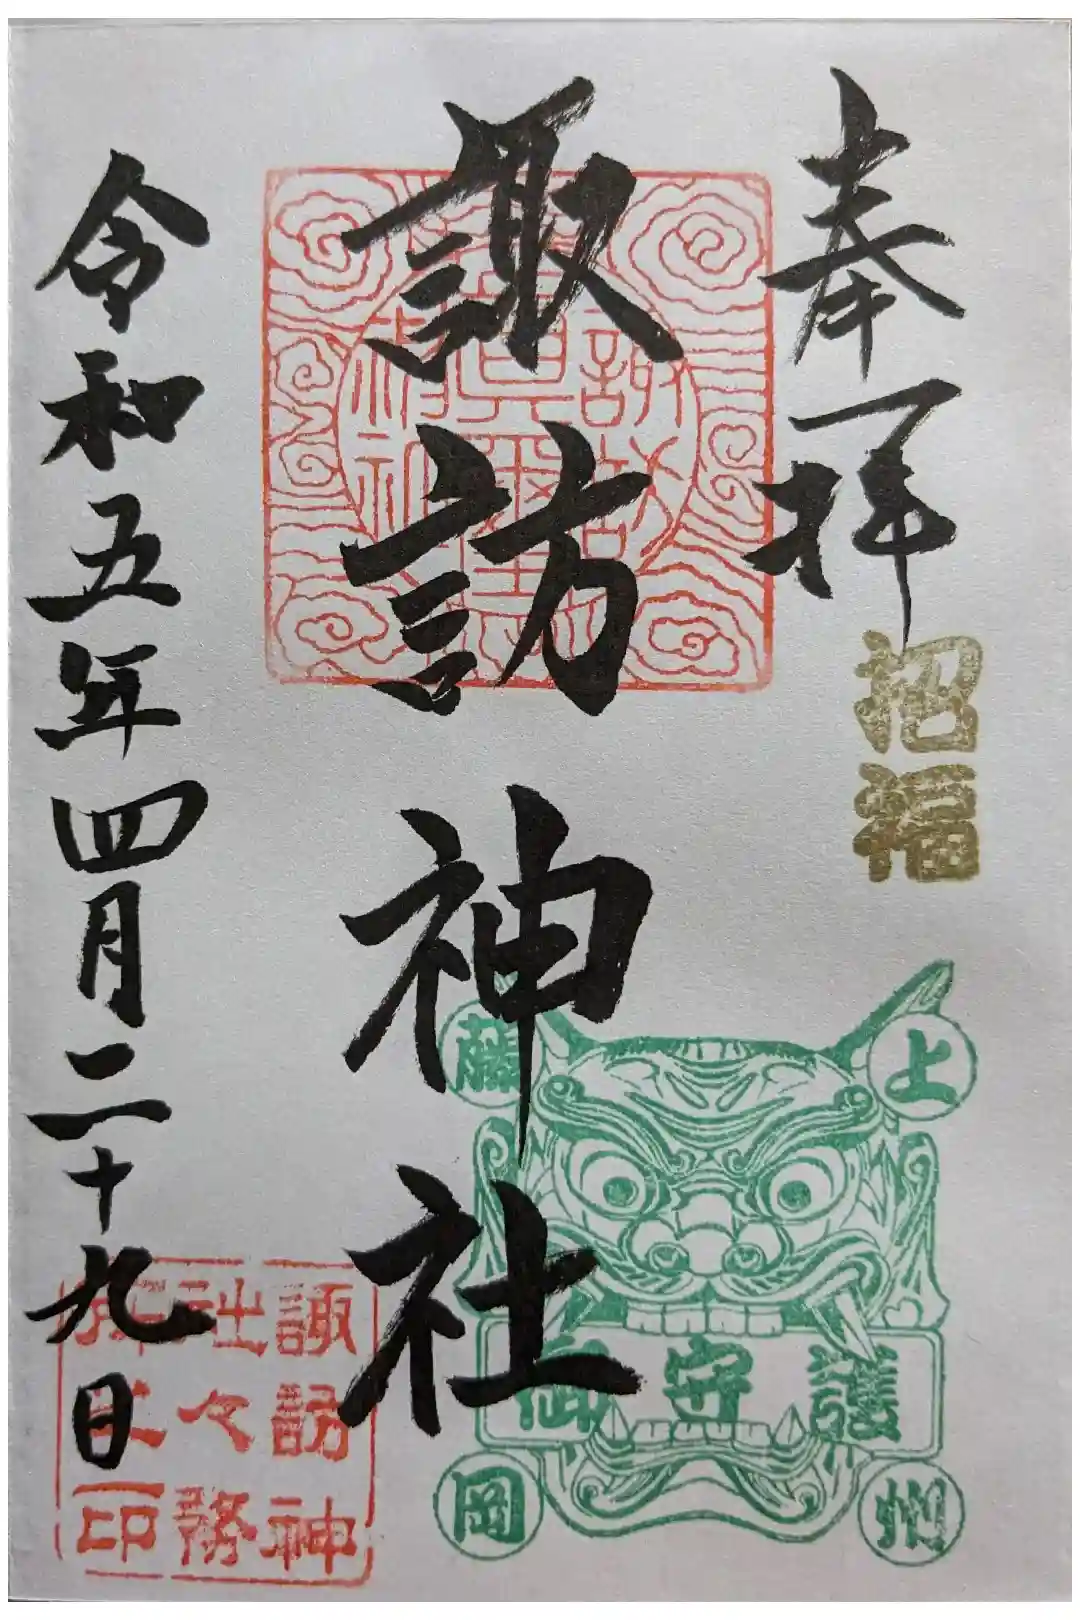 奉拝
招福
諏訪神社
令和五年四月二十九日
上州
藤岡
御守護
諏訪神
社々務
印